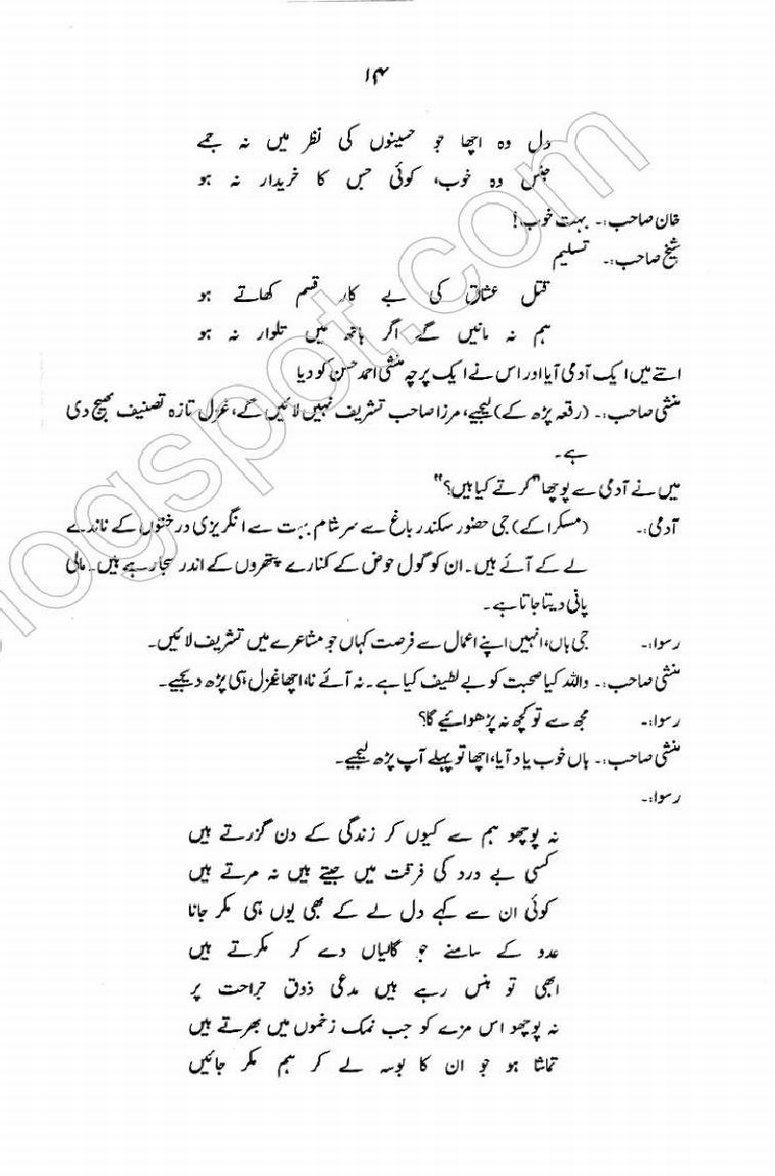 ۱۴
دل وہ اچھا جو حسینوں کی نظر میں نہ جمے
جنس وہ خوب، کوئی جس کا خریدار نہ ہو
خان صاحب:۔ بہت خوب!
شیخ صاحب:۔ تسلیم
قتل عشاق کی بے کار قسم کھاتے ہو
ہم نہ مانیں گے اگر ہاتھ میں تلوار نہ ہو
اتنے میں ایک آدمی آیا اور اس نے ایک پرچہ منشی احمد حسن کو دیا
منشی صاحب:۔ (رقعہ پڑھ کے) لیجیے، مرزا صاحب تشریف نہیں لائیں گے، غزل تازہ تصنیف بھیج دی
ہے۔
میں نے آدمی سے پوچھا "کرتے کیا ہیں؟"
آدمی:۔ (مسکرا کے) جی حضور سکندر باغ سے سر شام بہت سے انگریزی درختوں کے ناندے
لے کے آئے ہیں۔ ان کو گول حوض کے کنارے پتھروں کے اندر سجا رہے ہیں۔ مالی
پانی دیتا جاتا ہے۔
رسوا:۔ جی ہاں، انہیں اپنے اعمال سے فرصت کہاں جو مشاعرے میں تشریف لائیں۔
منشی صاحب:۔ واللہ کیا صحبت کو بے لطیف کیا ہے۔ نہ آئے نا، اچھا غزل ہی پڑھ دیجیے۔
رسوا:۔ مجھ سے تو کچھ نہ پڑھوائیے گا؟
منشی صاحب:۔ ہاں خوب یاد آیا، اچھا تو پہلے آپ پڑھ لیجیے۔
رسوا:۔
نہ پوچھو ہم سے کیوں کر زندگی کے دن گزرتے ہیں
کسی بے درد کی فرقت میں جیتے ہیں نہ مرتے ہیں
کوئی ان سے کہے دل لے کے بھی یوں ہی مکر جانا
عدو کے سامنے جو گالیاں دے کر مکرتے ہیں
ابھی تو ہنس رہے ہیں مدعی ذوق جراحت پر
نہ پوچھو اس مزے کو جب نمک زخموں میں بھرتے ہیں
تماشا ہو جو ان کا بوسہ لے کر ہم مکر جائیں
logspot.com